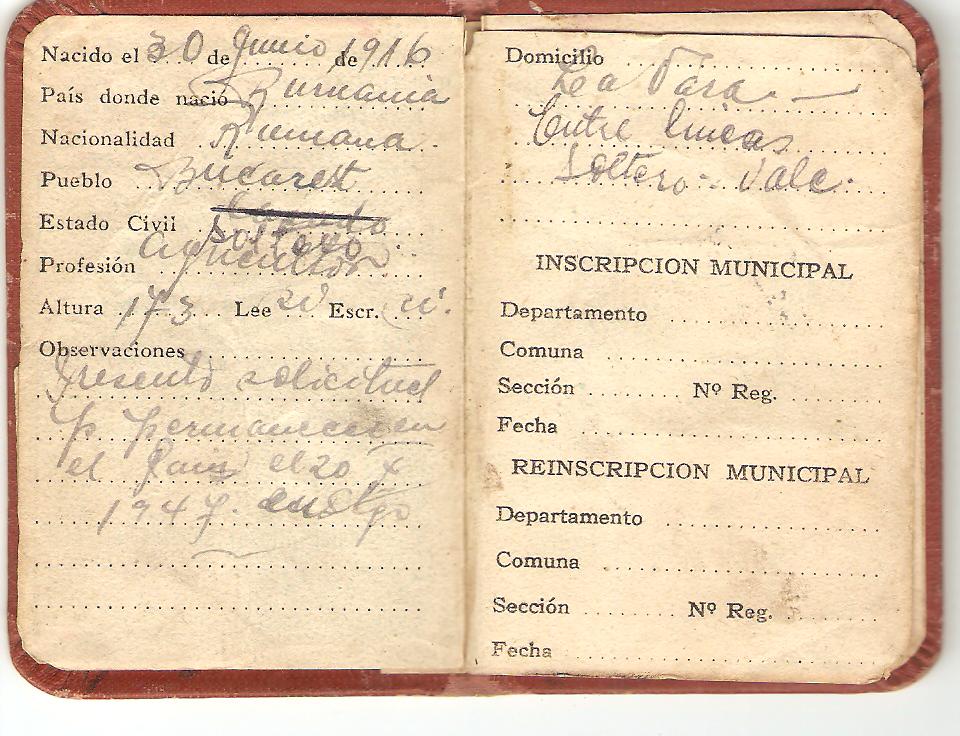 Nacido el 30 de Junio de 1916
País donde nació Rumania
Nacionalidad Rumana
Pueblo Bucarest
Estado Civil Casado soltero
Profesión agricultor
Altura 173 Lee si Escr. si.
Observaciones
Presentó solicitud
p permanecer en
el País el 20 X
1947. en Stgo
Domicilio
Entre lineas
Soltero - Vale.
INSCRIPCION MUNICIPAL
Departamento
Comuna
Sección Nº Reg.
Fecha
REINSCRIPCION MUNICIPAL
Departamento
Comuna
Sección Nº Reg.
Fecha